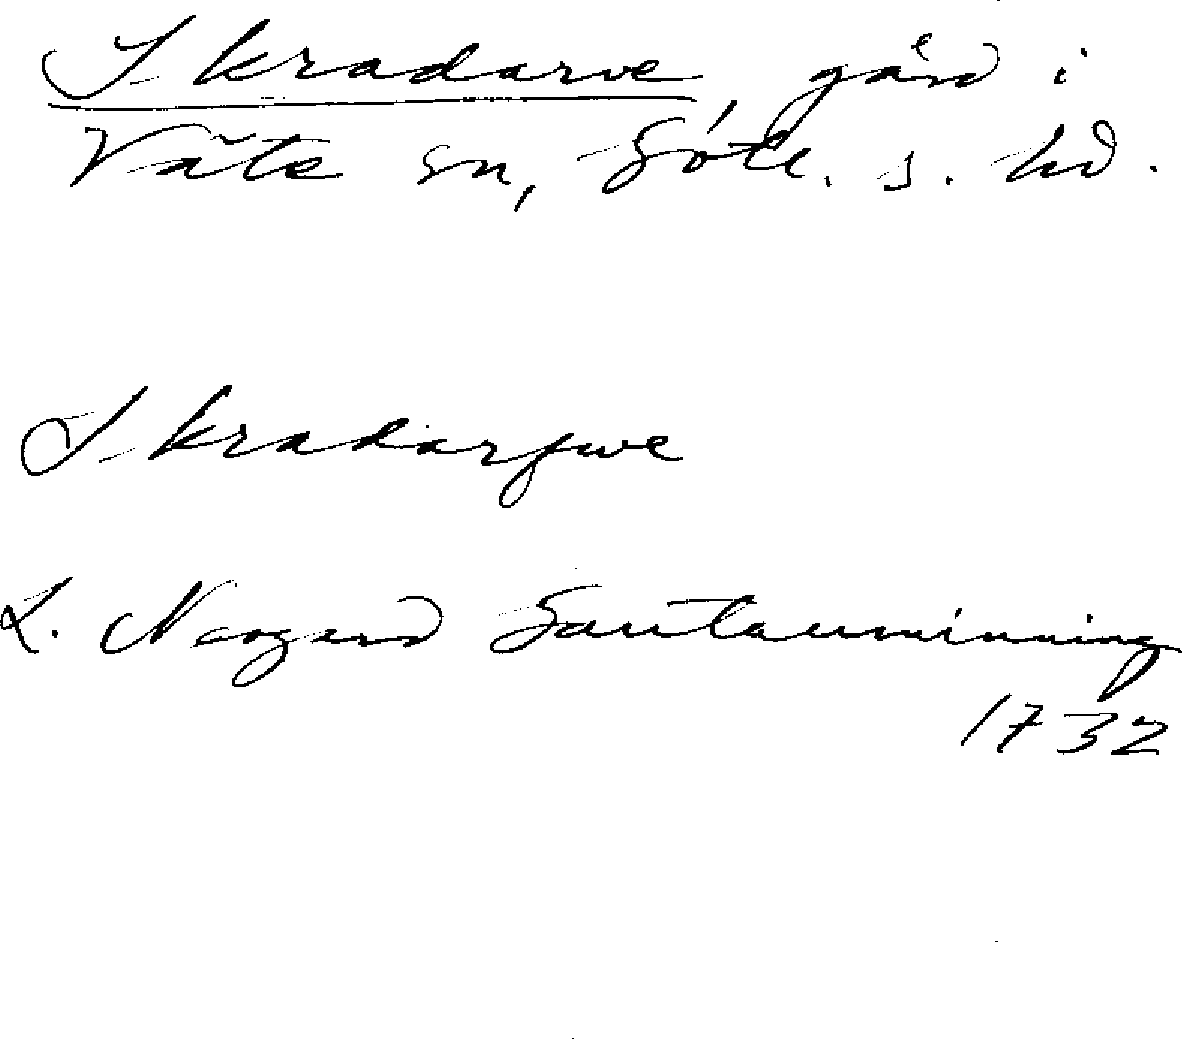 Skradarve, gård i
Väte sn, Gotl. s. hd.
Skradarfwe
L. Neogard Gautauminning
1732